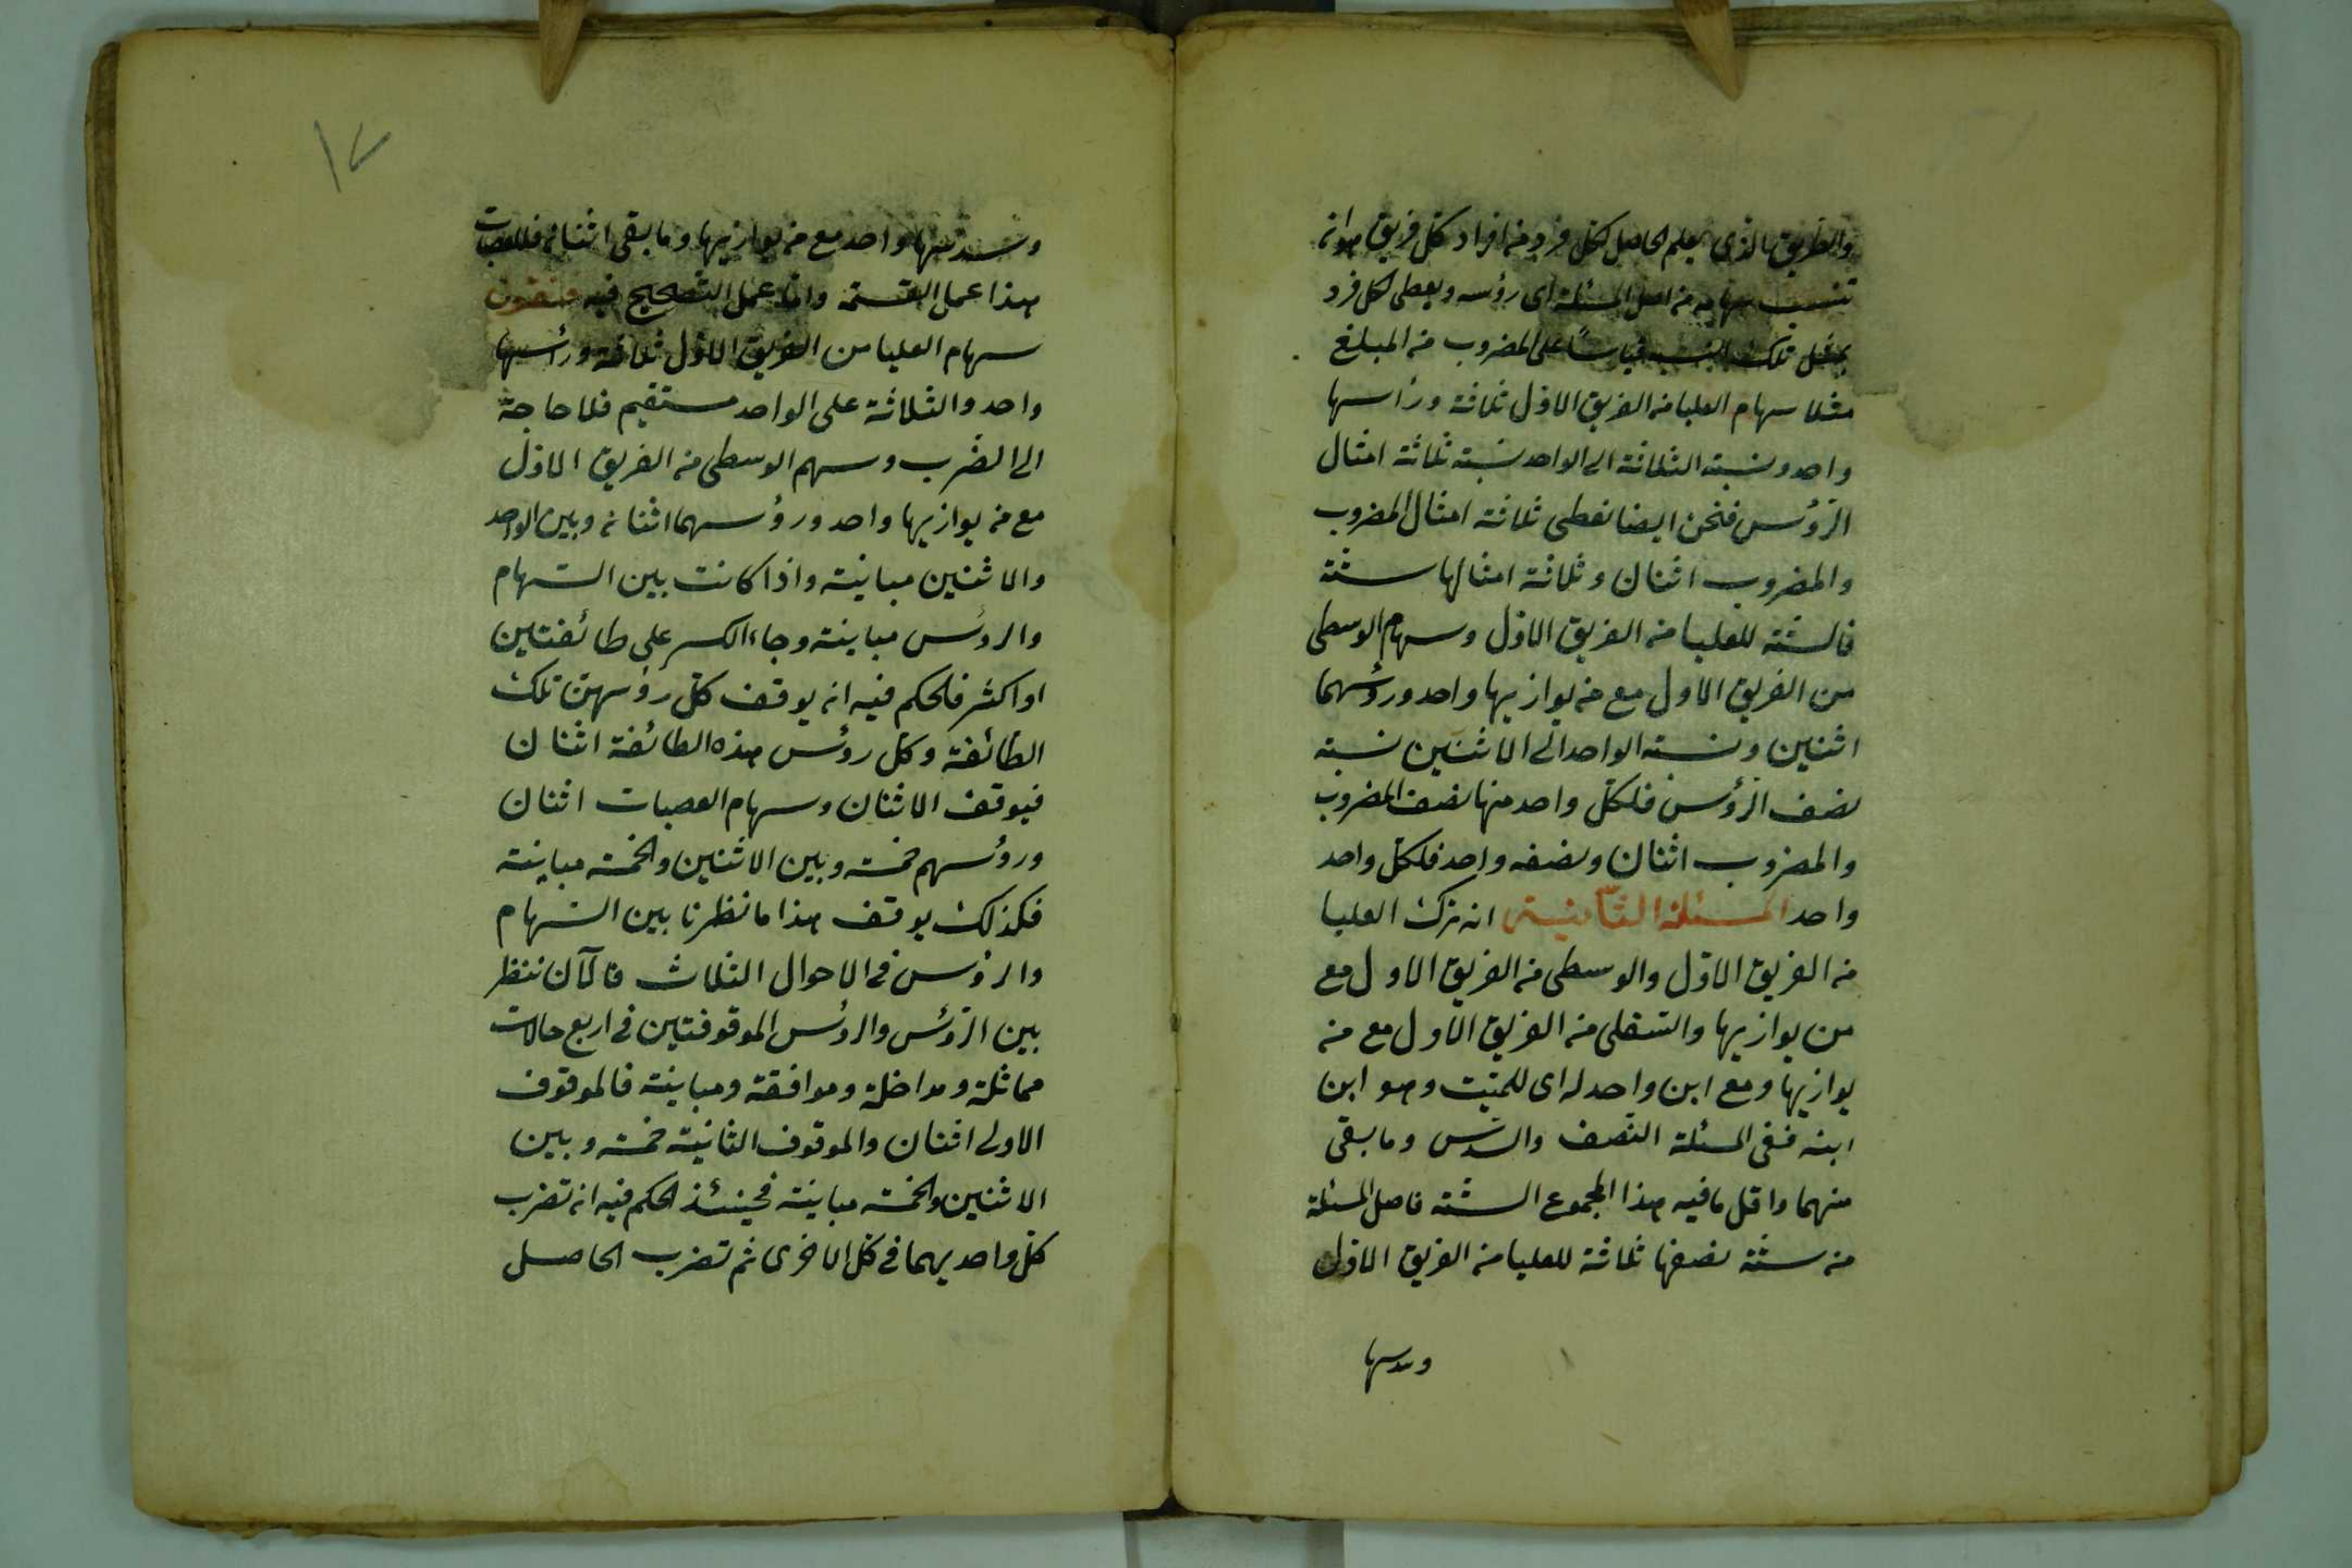 والطريق الذى يعلم الحاصل لكل فرد من افراد كل فريق هو انه
تنسب سهامه من اصل المسئلة اى رؤسه ويعطى لكل فرد
بمثل تلك النسبة قياسًا على المضروب من المبلغ
مثلا سهام العليا من الفريق الاوّل ثلاثة ورأسها
واحد ونسبة الثلاثة الى الواحد نسبة ثلاثة امثال
الرّؤس فنحن ايضا نعطى ثلاثة امثال المضروب
والمضروب اثنان وثلاثة امثالها ستّة
فالستّة للعليا من الفريق الاوّل وسهام الوسطى
من الفريق الاول مع من يوازيها واحد ورؤسهما
اثنين ونسبة الواحد الى الاثنين نسبة
نصف الرّؤس فلكلّ واحد منها نصف المضروب
والمضروب اثنان ونصفه واحد فلكلّ واحد
واحد المسئلة الثّانية ان ترك العليا
من الفريق الاوّل والوسطى من الفريق الاول مع
من يوازيها والسّفلى من الفريق الاول مع من
يوازيها ومع ابن واحد له اى للميّت وهو ابن
ابنه ففى المسئلة النّصف والسّدس وما بقى
منهما واقل ما فيه هذا المجموع الستّة فاصل المسئلة
من ستّة نصفها ثلاثة للعليا من الفريق الاوّل
وسدسها
وسدسها واحد مع من يوازيها وما بقى اثنان فللعصبات
هذا عمل القسمة وامّا عمل التصحيح فيه فنقول
سهام العليا من الفريق الاوّل ثلاثة ورأسها
واحد والثلاثة على الواحد مستقيم فلا حاجة
الى الضّرب وسهم الوسطى من الفريق الاوّل
مع من يوازيها واحد ورؤسهما اثنان وبين الواحد
والاثنين مباينة واذا كانت بين السّهام
والرؤس مباينة وجاء الكسر على طائفتين
او اكثر فالحكم فيه ان يوقف كلّ رؤسهن تلك
الطّائفة وكلّ رؤس هذه الطائفة اثنان
فيوقف الاثنان وسهام العصبات اثنان
ورؤسهم خمسة وبين الاثنين والخمسة مباينة
فكذلك يوقف هذا ما نظرنا بين السّهام
والرؤس فى الاحوال الثلاث فالآن ننظر
بين الرّؤس والرؤس الموقوفتين فى اربع حالات
مماثلة ومداخلة وموافقة ومباينة فالموقوف
الاولى اثنان والموقوف الثانية خمسة وبين
الاثنين والخمسة مباينة فحينئذ الحكم فيه ان تضرب
كلّ واحد يهما فى كل الاخرى ثم تضرب الحاصل